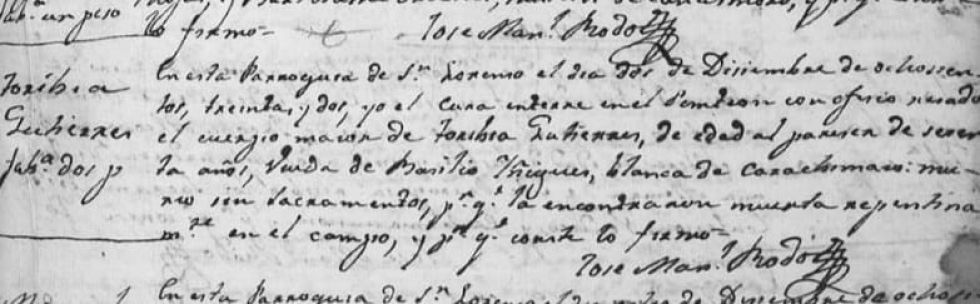 fab.ª un peso
lo firmo=
Jose Man.l Rodo
Toribia
Gutierres
fab.ª dos p
En esta Parroquia de S.n Lorenzo el dia dos de Disiembre de ochossen
tos, treinta, y dos, yo el Cura enterre en el Sementerio con ofisio resado
el cuerpo maior de Toribia Gutierres, de edad al pareser de seten
ta años, Viuda de Basilio Yñigues, blanca de Carachimaio: mu-
rio sin Sacramentos, p.r q.e la encontraron muerta repentina
m.te en el campo, y p.a q.e conste lo firmo=
Jose Man.l Rodo
En esta Parroquia de S.n Lorenzo el dia de Disiembre de ochos